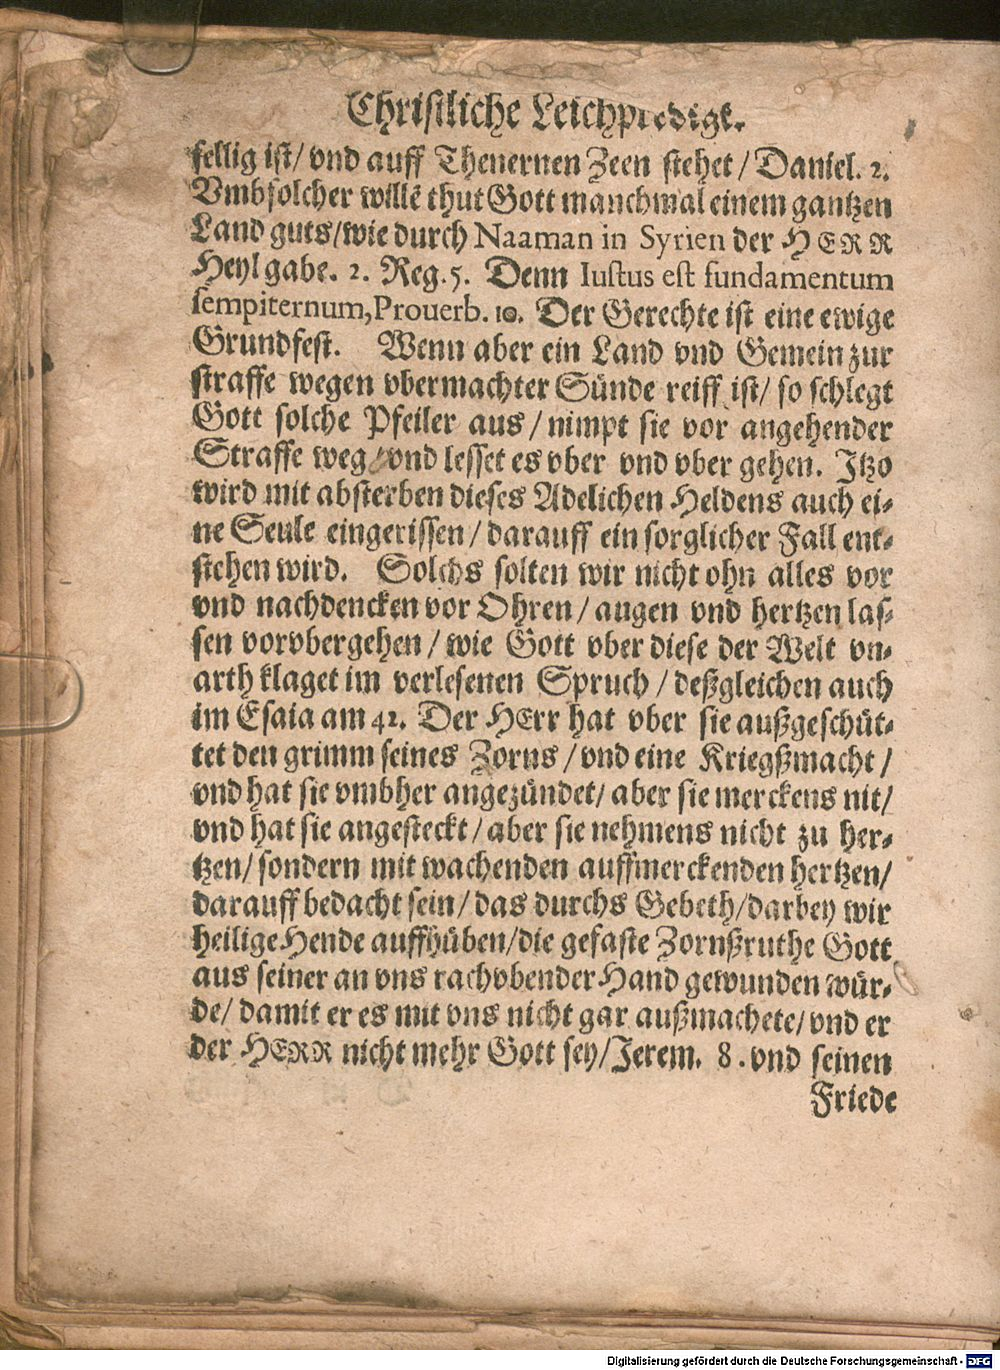 Christliche Leichpredigt.
fellig ist/ vnd auff Thenernen Zeen stehet/ Daniel. 2.
Vmb solcher willē thut Gott manchmal einem gantzen
Land guts/ wie durch Naaman in Syrien der HERR
Heyl gabe. 2. Reg. 5. Denn Iustus est fundamentum
sempiternum, Prouerb. 10. Der Gerechte ist eine ewige
Grundfest. Wenn aber ein Land vnd Gemein zur
straffe wegen vbermachter Sünde reiff ist/ so schlegt
Gott solche Pfeiler aus/ nimpt sie vor angehender
Straffe weg/ vnd lesset es vber vnd vber gehen. Itzo
wird mit absterben dieses Adelichen Heldens auch ei-
ne Seule eingerissen/ darauff ein sorglicher Fall ent-
stehen wird. Solchs solten wir nicht ohn alles vor
vnd nachdencken vor Ohren/ augen vnd hertzen las-
sen vorvbergehen/ wie Gott vber diese der Welt vn-
arth klaget im verlesenen Spruch/ deßgleichen auch
im Esaia am 42. Der HErr hat vber sie außgeschüt-
tet den grimm seines Zorns/ vnd eine Kriegßmacht/
vnd hat sie vmbher angezündet/ aber sie merckens nit/
vnd hat sie angesteckt/ aber sie nehmens nicht zu her-
tzen/ sondern mit wachenden auffmerckenden hertzen/
darauff bedacht sein/ das durchs Gebeth/ darbey wir
heilige Hende auffhüben/ die gefaste Zornßruthe Gott
aus seiner an vns rachvbender Hand gewunden wür-
de/ damit er es mit vns nicht gar außmachete/ vnd er
der HERR nicht mehr Gott sey/ Jerem. 8. vnd seinen
Friede
Digitalisierung gefördert durch die Deutsche Forschungsgemeinschaft - DFG